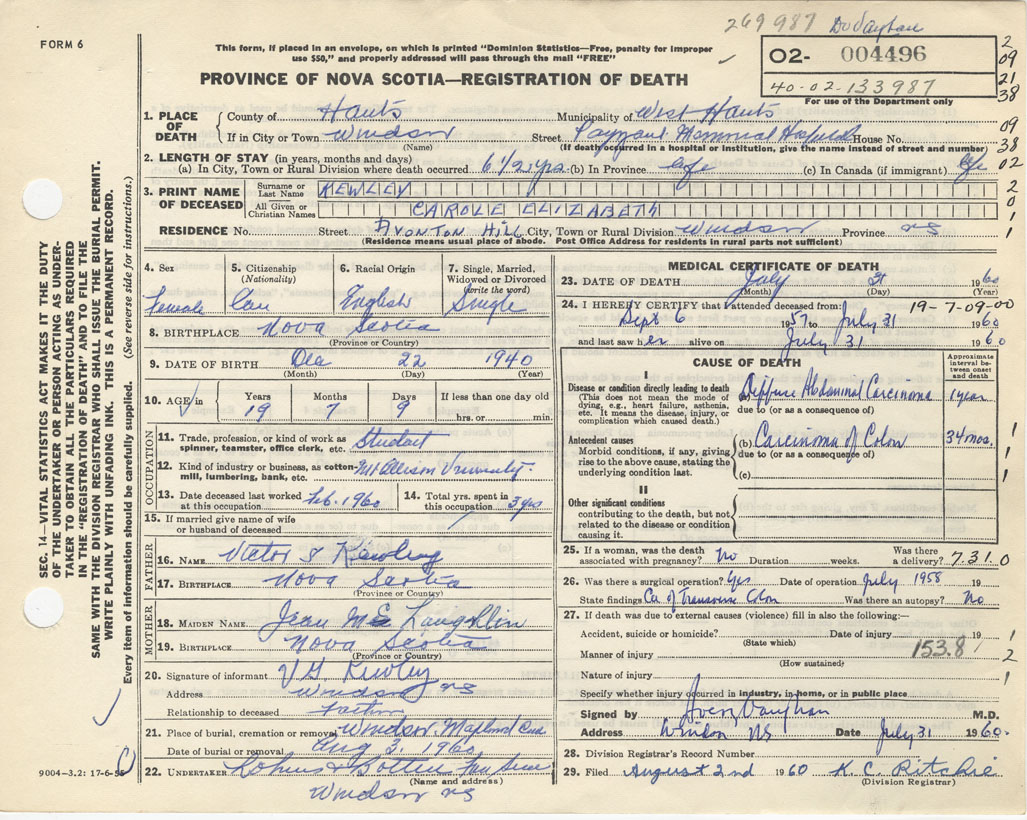 269987
FORM 6
This form, if placed in an envelope, on which is printed "Dominion Statistics—Free, penalty for improper
use $50," and properly addressed will pass through the mail "FREE"
PROVINCE OF NOVA SCOTIA—REGISTRATION OF DEATH
O2- 004496
40-02-133987
For use of the Department only
2
09
21
38
09
38
02
2
0
1
1
1. PLACE OF DEATH
County of Hants Municipality of West Hants
If in City or Town Windsor Street Payzant Memorial Hospital House No.
(Name) (If death occurred in a hospital or institution, give the name instead of street and number)
2. LENGTH OF STAY (in years, months and days)
(a) In City, Town or Rural Division where death occurred 6 1/2 yrs. (b) In Province life (c) In Canada (if immigrant) life
3. PRINT NAME OF DECEASED
Surname or Last Name KEWLEY
All Given or Christian Names CAROLE ELIZABETH
RESIDENCE No. Street AVONTON HILL City, Town or Rural Division Windsor Province NS
(Residence means usual place of abode. Post Office Address for residents in rural parts not sufficient)
4. Sex
Female
5. Citizenship
(Nationality)
Can
6. Racial Origin
English
7. Single, Married,
Widowed or Divorced
(write the word)
Single
8. BIRTHPLACE Nova Scotia
(Province or Country)
9. DATE OF BIRTH Dec 22 1940
(Month) (Day) (Year)
10. AGE in
Years Months Days If less than one day old
19 7 9 hrs. or min.
OCCUPATION
11. Trade, profession, or kind of work as
spinner, teamster, office clerk, etc. Student
12. Kind of industry or business, as cotton-
mill, lumbering, bank, etc. Mt Allison University
13. Date deceased last worked
at this occupation Feb. 1960
14. Total yrs. spent in
this occupation 3 yrs
15. If married give name of wife
or husband of deceased
FATHER
16. NAME Victor G Kewley
17. BIRTHPLACE Nova Scotia
(Province or Country)
MOTHER
18. MAIDEN NAME Jean Mc Laughlin
19. BIRTHPLACE Nova Scotia
(Province or Country)
20. Signature of informant V.G. Kewley
Address Windsor NS
Relationship to deceased Father
21. Place of burial, cremation or removal Windsor Maplewood Cem
Date of burial or removal Aug 3, 1960
22. UNDERTAKER
(Name and address)
Windsor NS
MEDICAL CERTIFICATE OF DEATH
23. DATE OF DEATH July 31 1960
(Month) (Day) (Year)
24. I HEREBY CERTIFY that I attended deceased from: 19-7-09-00
Sept 6 1957 to July 31 1960
and last saw her alive on July 31 1960
CAUSE OF DEATH
Approximate
interval be-
tween onset
and death
I
Disease or condition directly leading to death
(This does not mean the mode of
dying, e.g., heart failure, asthenia,
etc. It means the disease, injury, or
complication which caused death.)
Diffuse Abdominal Carcinoma 1 year
due to (or as a consequence of)
Antecedent causes
Morbid conditions, if any, giving
rise to the above cause, stating the
underlying condition last.
(b) Carcinoma of Colon 34 mos.
due to (or as a consequence of)
(c)
1
1
1
II
Other significant conditions
contributing to the death, but not
related to the disease or condition
causing it.
25. If a woman, was the death
associated with pregnancy? No Duration weeks. Was there
a delivery? 7.31.0
26. Was there a surgical operation? Yes Date of operation July 1958 19
State findings Ca of Transverse Colon Was there an autopsy? No
27. If death was due to external causes (violence) fill in also the following:
Accident, suicide or homicide? Date of injury 19 1
(State which)
Manner of injury 153.8 2
(How sustained)
Nature of injury 1
Specify whether injury occurred in industry, in home, or in public place
Signed by Avery Vaughan M.D.
Address Windsor NS Date July 31 1960.
28. Division Registrar's Record Number
29. Filed August 2nd 1960 K. C. Ritchie
(Division Registrar)
SEC. 14—VITAL STATISTICS ACT MAKES IT THE DUTY
OF THE UNDERTAKER OR PERSON ACTING AS UNDER-
TAKER TO OBTAIN ALL THE PARTICULARS REQUIRED
IN THE "REGISTRATION OF DEATH" AND TO FILE THE
SAME WITH THE DIVISION REGISTRAR WHO SHALL ISSUE THE BURIAL PERMIT.
WRITE PLAINLY WITH UNFADING INK. THIS IS A PERMANENT RECORD.
Every item of information should be carefully supplied. (See reverse side for instructions.)
9004-3.2: 17-6-58